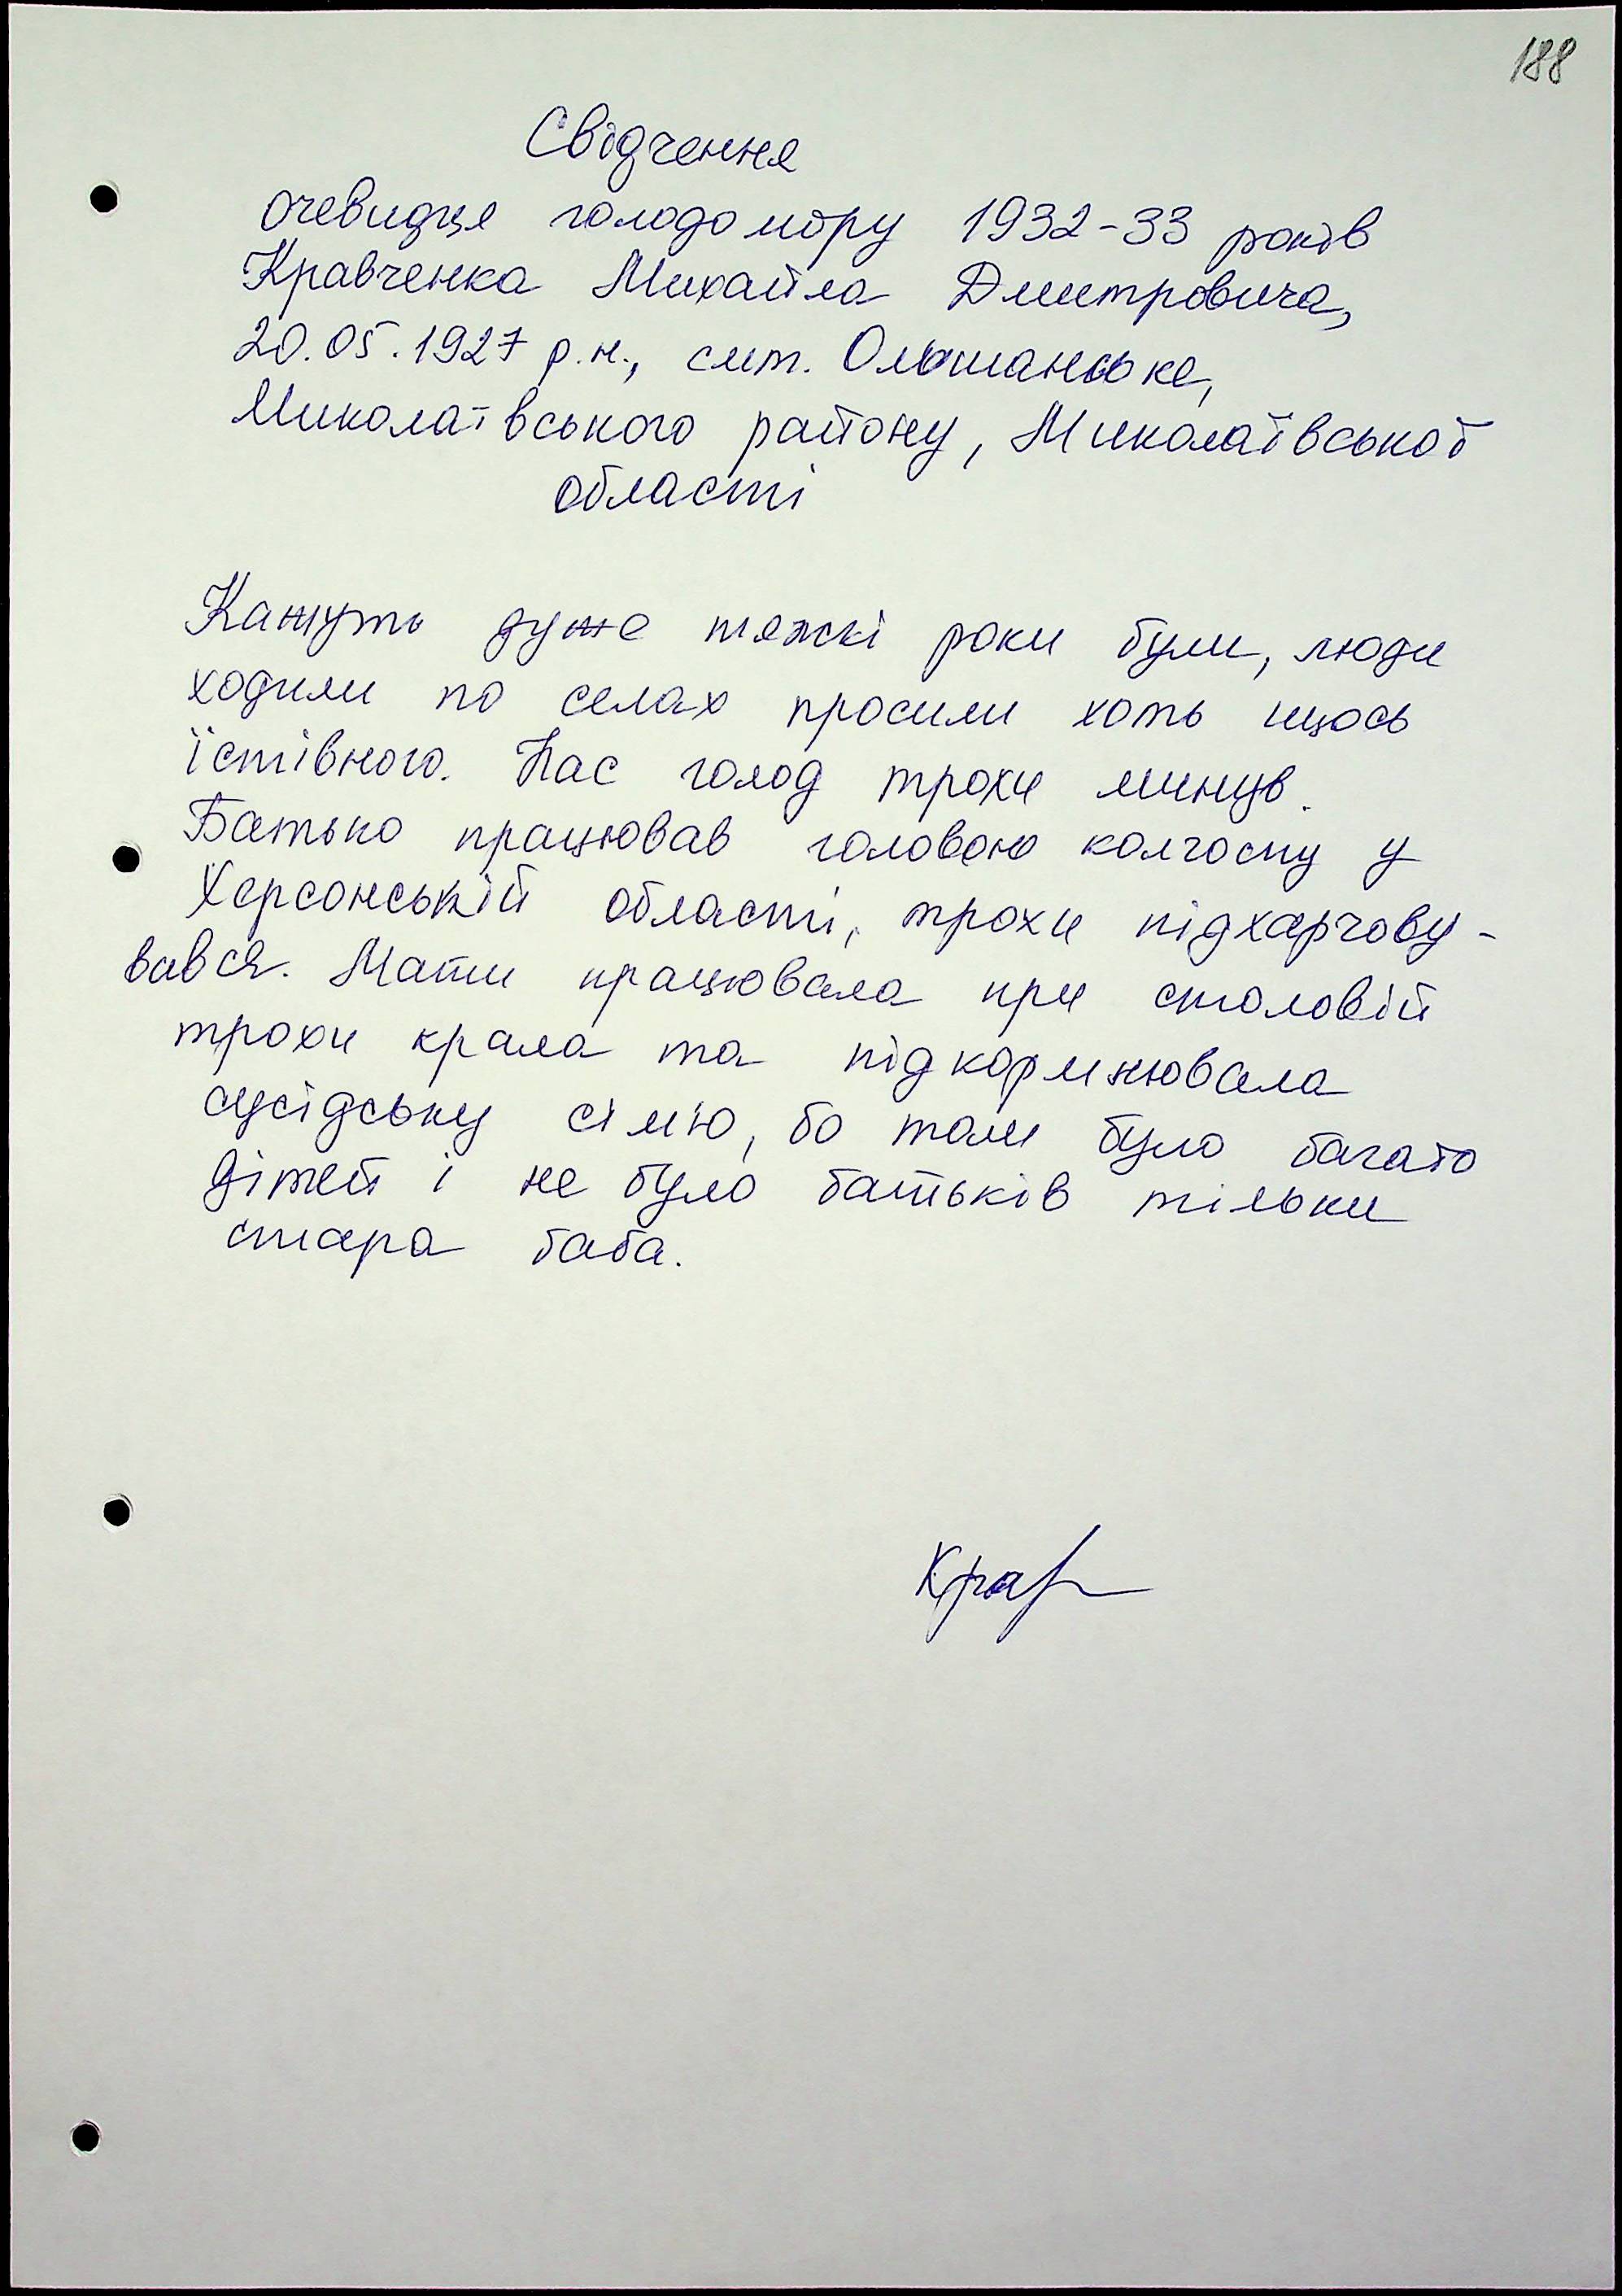 188
Свідчення
очевидця голодомору 1932-33 років
Кравченка Михайла Дмитровича,
20.05.1927 р.н., смт. Ольшанське,
Миколаївського району, Миколаївської
області
Кажуть дуже тяжкі роки були, люди
ходили по селах просили хоть щось
їстівного. Нас голод трохи минув.
Батько працював головою колгоспу у
Херсонській області, трохи підхарчову-
вався. Мати працювала при столовій
трохи крала та підкормнювала
сусідську сім'ю, бо там було багато
дітей і не було батьків тільки
стара баба.